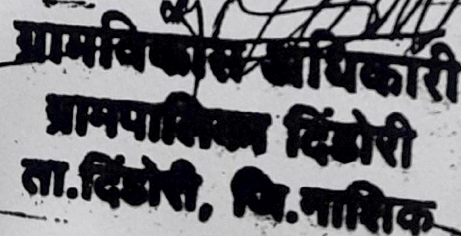 ग्रामविकास अधिकारी
ग्रामपालिका दिंडोरी
ता.दिंडोरी, जि.नाशिक